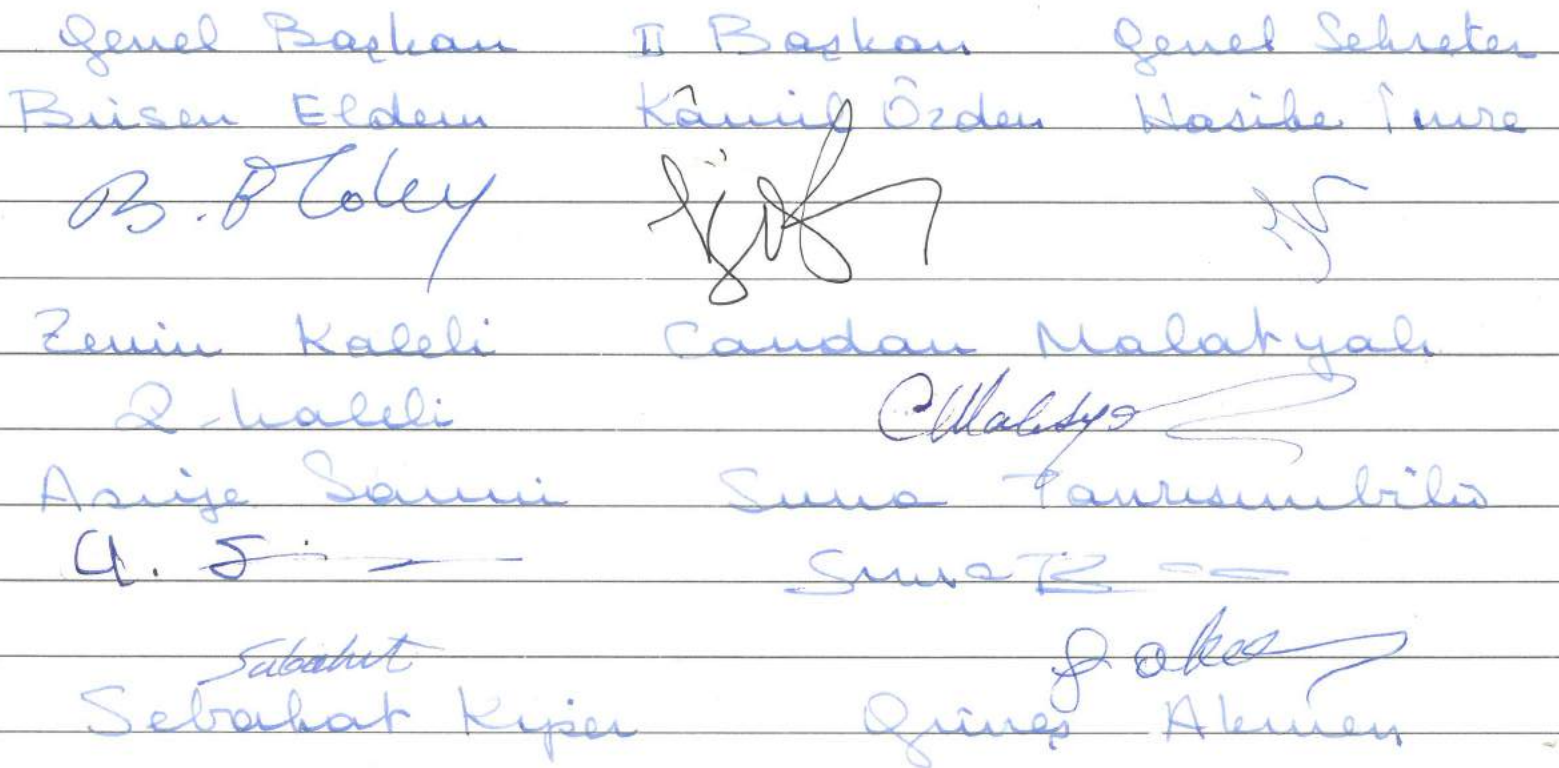 Genel Başkan II Başkan Genel Sekreter
Birsen Eldem Kâmil Özden Hasibe İmre
Zerrin Kaleli Candan Malatyalı
Z. Kaleli
Asuye Sanni Suna Tanrısınbilir
Suna
Sabahat
Sebahat Kiper Güneş Akmen